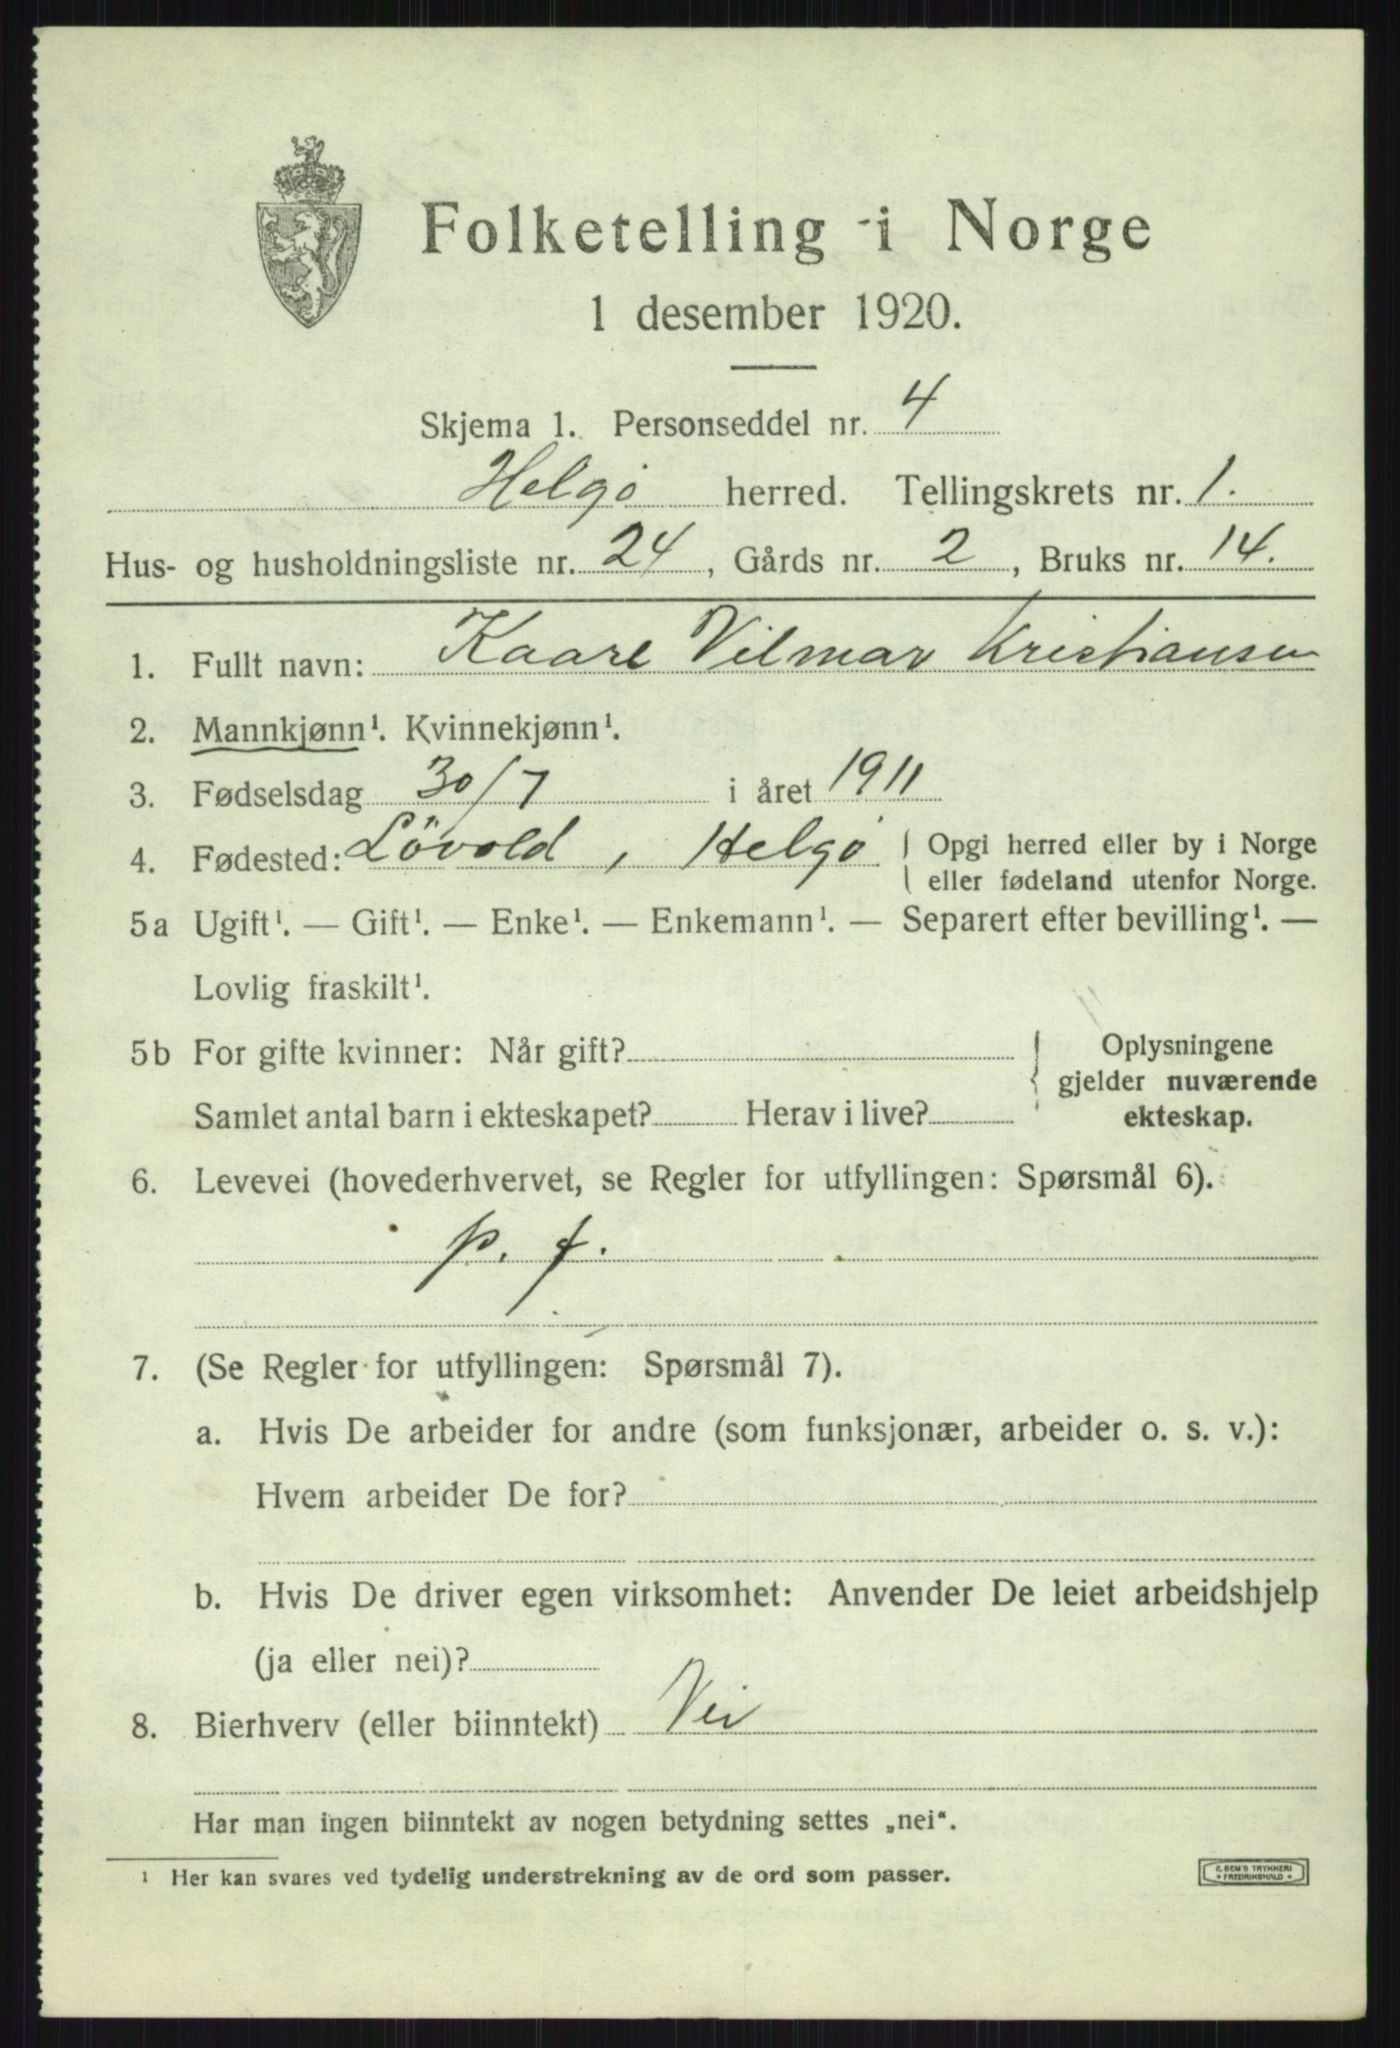 Folketelling i Norge
1 desember 1920.
Skjema 1. Personseddel nr. 4
Helgö herred. Tellingskrets nr. 1.
Hus- og husholdningsliste nr. 24, Gårds nr. 2, Bruks nr. 14.
1. Fullt navn: Kaare Vilmar Kristiansen
2. Mannkjønn¹. Kvinnekjønn¹.
3. Fødselsdag 30/7 i året 1911
4. Fødested: Lövold, Helgö { Opgi herred eller by i Norge
eller fødeland utenfor Norge.
5a Ugift¹. — Gift¹. — Enke¹. — Enkemann¹. — Separert efter bevilling¹. —
Lovlig fraskilt¹.
5b For gifte kvinner: Når gift? { Oplysningene
gjelder nuværende
Samlet antal barn i ekteskapet? Herav i live? ekteskap.
6. Levevei (hovederhvervet, se Regler for utfyllingen: Spørsmål 6).
p. f.
7. (Se Regler for utfyllingen: Spørsmål 7).
a. Hvis De arbeider for andre (som funksjonær, arbeider o. s. v.):
Hvem arbeider De for?
b. Hvis De driver egen virksomhet: Anvender De leiet arbeidshjelp
(ja eller nei)?
8. Bierhverv (eller biinntekt) Nei
Har man ingen biinntekt av nogen betydning settes „nei“.
¹ Her kan svares ved tydelig understrekning av de ord som passer.
E. SEM'S TRYKKERI
• FREDRIKSHALD •